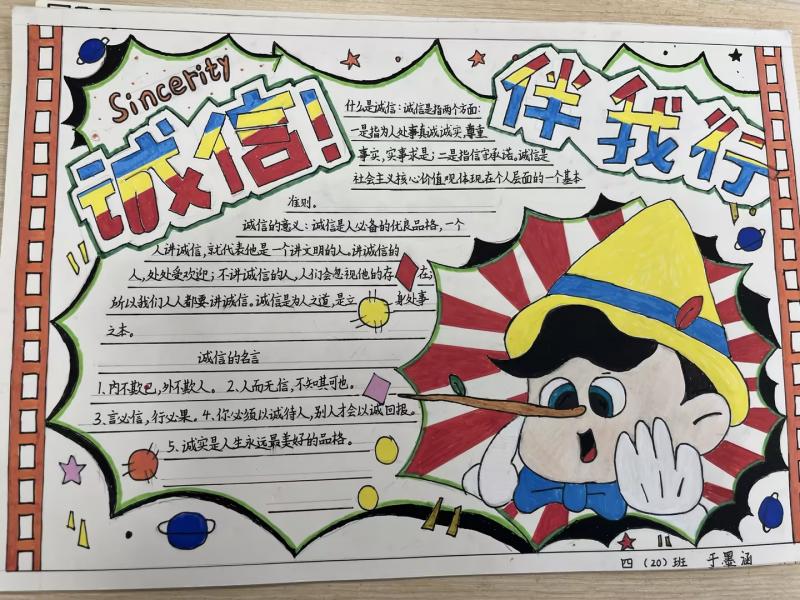 Sincerity
诚信!
伴我行
什么是诚信:诚信是指两个方面:
一是指为人处事真诚诚实,尊重
事实,实事求是;二是指信守承诺。诚信是
社会主义核心价值观体现在个人层面的一个基本
准则。
诚信的意义:诚信是人必备的优良品格,一个
人讲诚信,就代表他是一个讲文明的人。讲诚信的
人,处处受欢迎;不讲诚信的人,人们会忽视他的存在;
所以我们人人都要讲诚信。诚信是为人之道,是立身处事
之本。
诚信的名言
1.内不欺己,外不欺人。 2.人而无信,不知其可也。
3.言必信,行必果。4.你必须以诚待人,别人才会以诚回报。
5.诚实是人生永远最美好的品格。
四(20)班 于墨涵